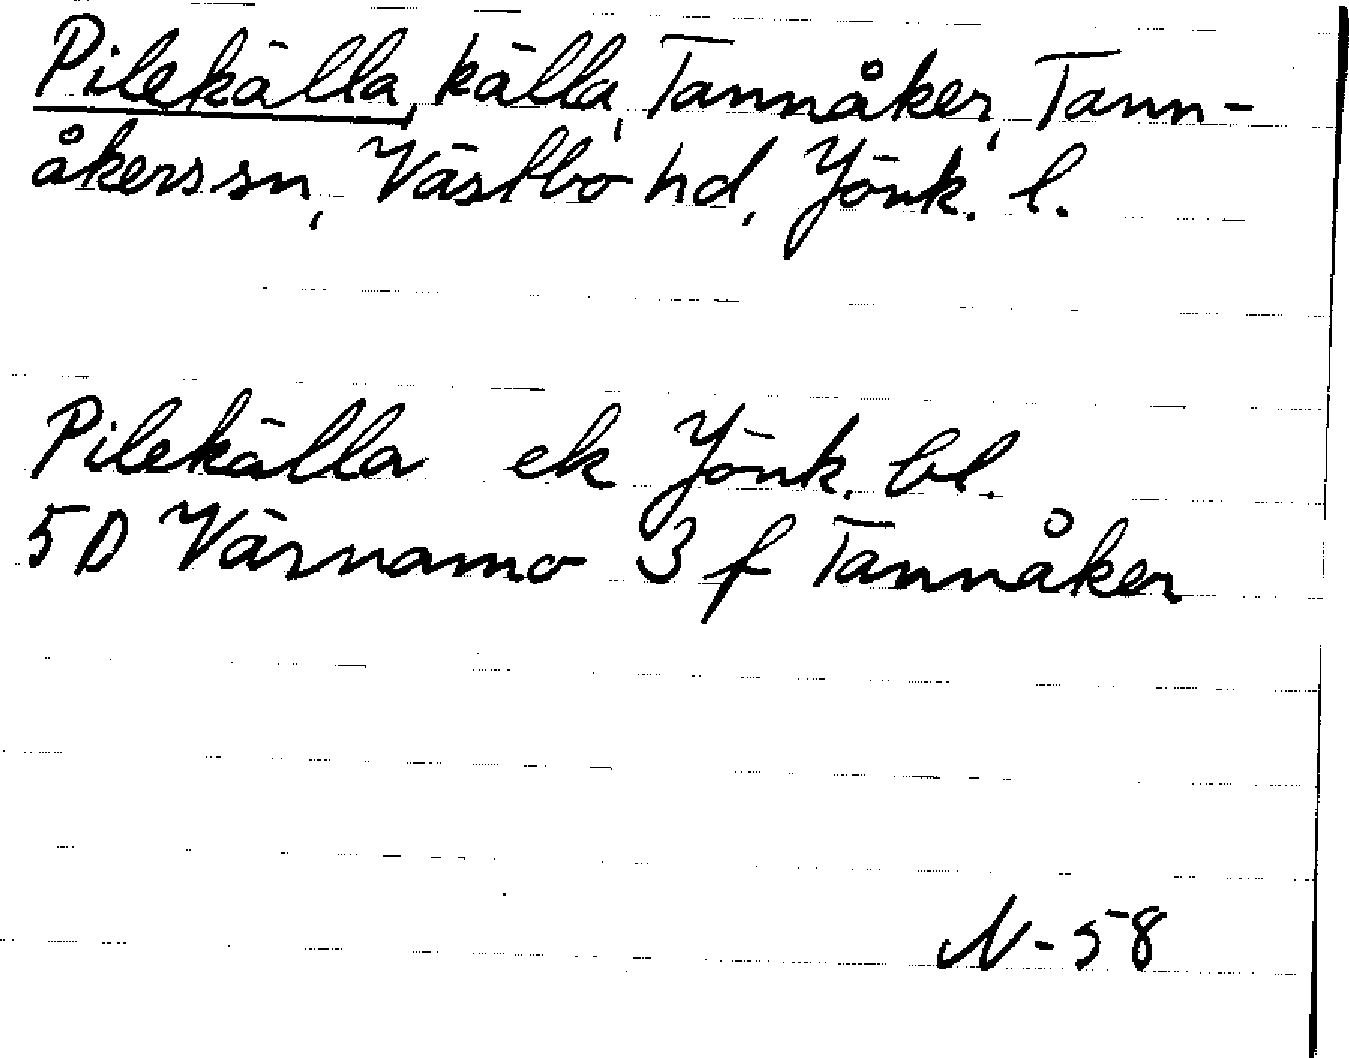 Pilekälla, källa, Tannåker, Tann-
åkers sn, Västbo hd, Jönk. l.
Pilekälla ek Jönk. bl.
5D Värnamo 3 f Tannåker
N-58